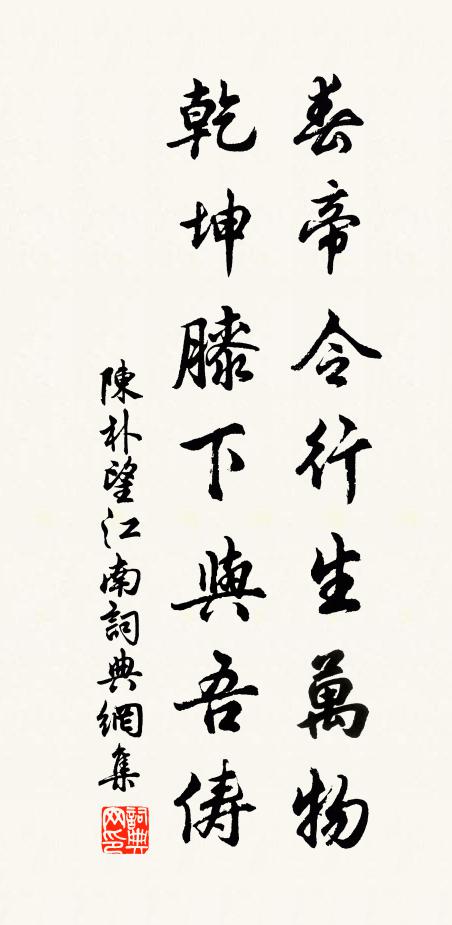 春帝令行生萬物
乾坤膝下與吾儔
陳朴望江南詞典網集
詞典網印